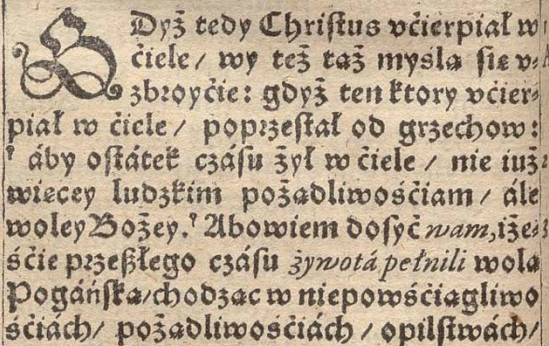 GDyż tedy Christus vćierpiał w
ćiele / wy też tąż myślą się v⸗
zbroyćie: gdyż ten ktory vćier⸗
piał w ćiele / poprzestał od grzechow:
' áby ostátek czásu żył w ćiele / nie iuż
więcey ludzkim pożądliwośćiam / ále
woley Bożey.' Abowiem dosyć wam, iże⸗
śćie przeszłego czásu żywotá pełnili wolą
Pogáńską/chodząc w niepowśćiągliwo
śćiách/ pożądliwośćiách / opilstwách/